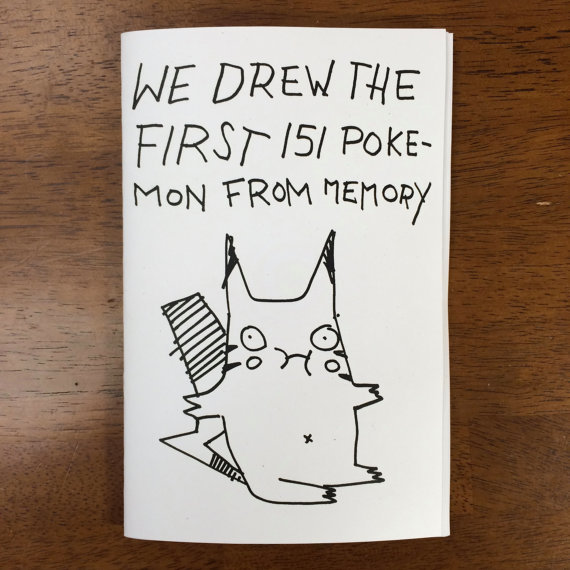 WE DREW THE
FIRST 151 POKE-
MON FROM MEMORY